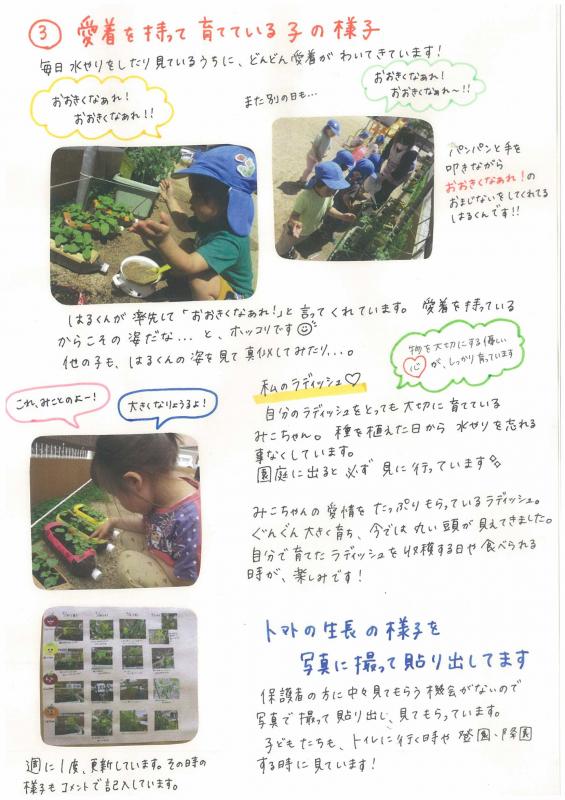 ③ 愛着を持って育てている子の様子
毎日水やりをしたり見ているうちに、どんどん愛着がわいてきています!
おおきくなあれ!
おおきくなあれ!!
また別の日も...
おおきくなあれ!
おおきくなあれ~!!
パンパンと手を
叩きながら
おおきくなあれ!の
おまじないをしてくれてる
はるくんです!!
はるくんが率先して「おおきくなあれ!」と言ってくれています。愛着を持っている
からこその姿だな...と、ホッコリです
他の子も、はるくんの姿を見て真似してみたり...。
物を大切にする優しい
心が、しっかり育っています
私のラディッシュ♡
これ、みことのよー!
大きくなりょうるよ!
自分のラディッシュをとっても大切に育てている
みこちゃん。種を植えた日から水やりを忘れる
事なくしています。
園庭に出ると必ず見に行っています
みこちゃんの愛情をたっぷりもらっているラディッシュ。
ぐんぐん大きく育ち、今では丸い頭が見えてきました。
自分で育てたラディッシュを収穫する日や食べられる
時が、楽しみです!
トマトの生長の様子を
写真に撮って貼り出してます
保護者の方に中を見てもらう機会がないので
写真で撮って貼り出し、見てもらっています。
子どもたちも、トイレに行く時や登園、降園
する時に見ています!
週に1度、更新しています。その時の
様子もコメントで記入しています。